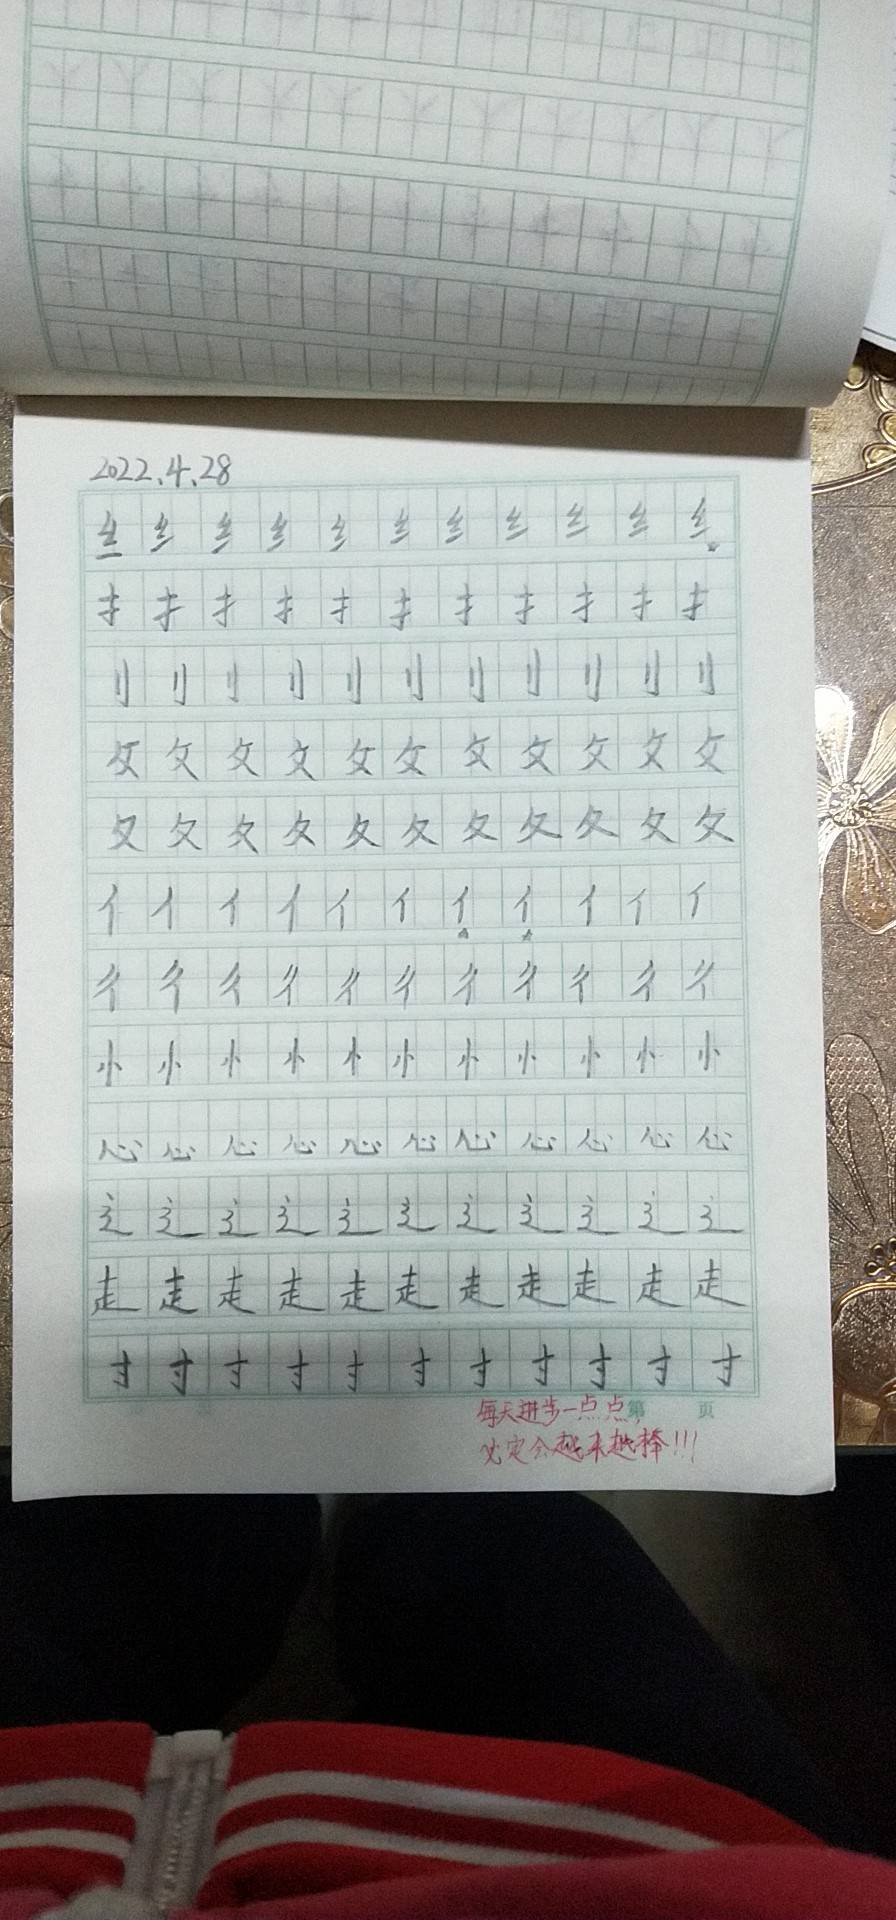 2022.4.28
纟 纟 纟 纟 纟 纟 纟 纟 纟 纟 纟
扌 扌 扌 扌 扌 扌 扌 扌 扌 扌 扌
刂 刂 刂 刂 刂 刂 刂 刂 刂 刂 刂
攵 攵 攵 攵 攵 攵 攵 攵 攵 攵 攵
夂 夂 夂 夂 夂 夂 夂 夂 夂 夂 夂
亻 亻 亻 亻 亻 亻 亻 亻 亻 亻 亻
彳 彳 彳 彳 彳 彳 彳 彳 彳 彳 彳
忄 忄 忄 忄 忄 忄 忄 忄 忄 忄 忄
心 心 心 心 心 心 心 心 心 心 心
辶 辶 辶 辶 辶 辶 辶 辶 辶 辶 辶
走 走 走 走 走 走 走 走 走 走 走
寸 寸 寸 寸 寸 寸 寸 寸 寸 寸 寸
每天进步一点点, 第 页
必定会越来越棒!!!